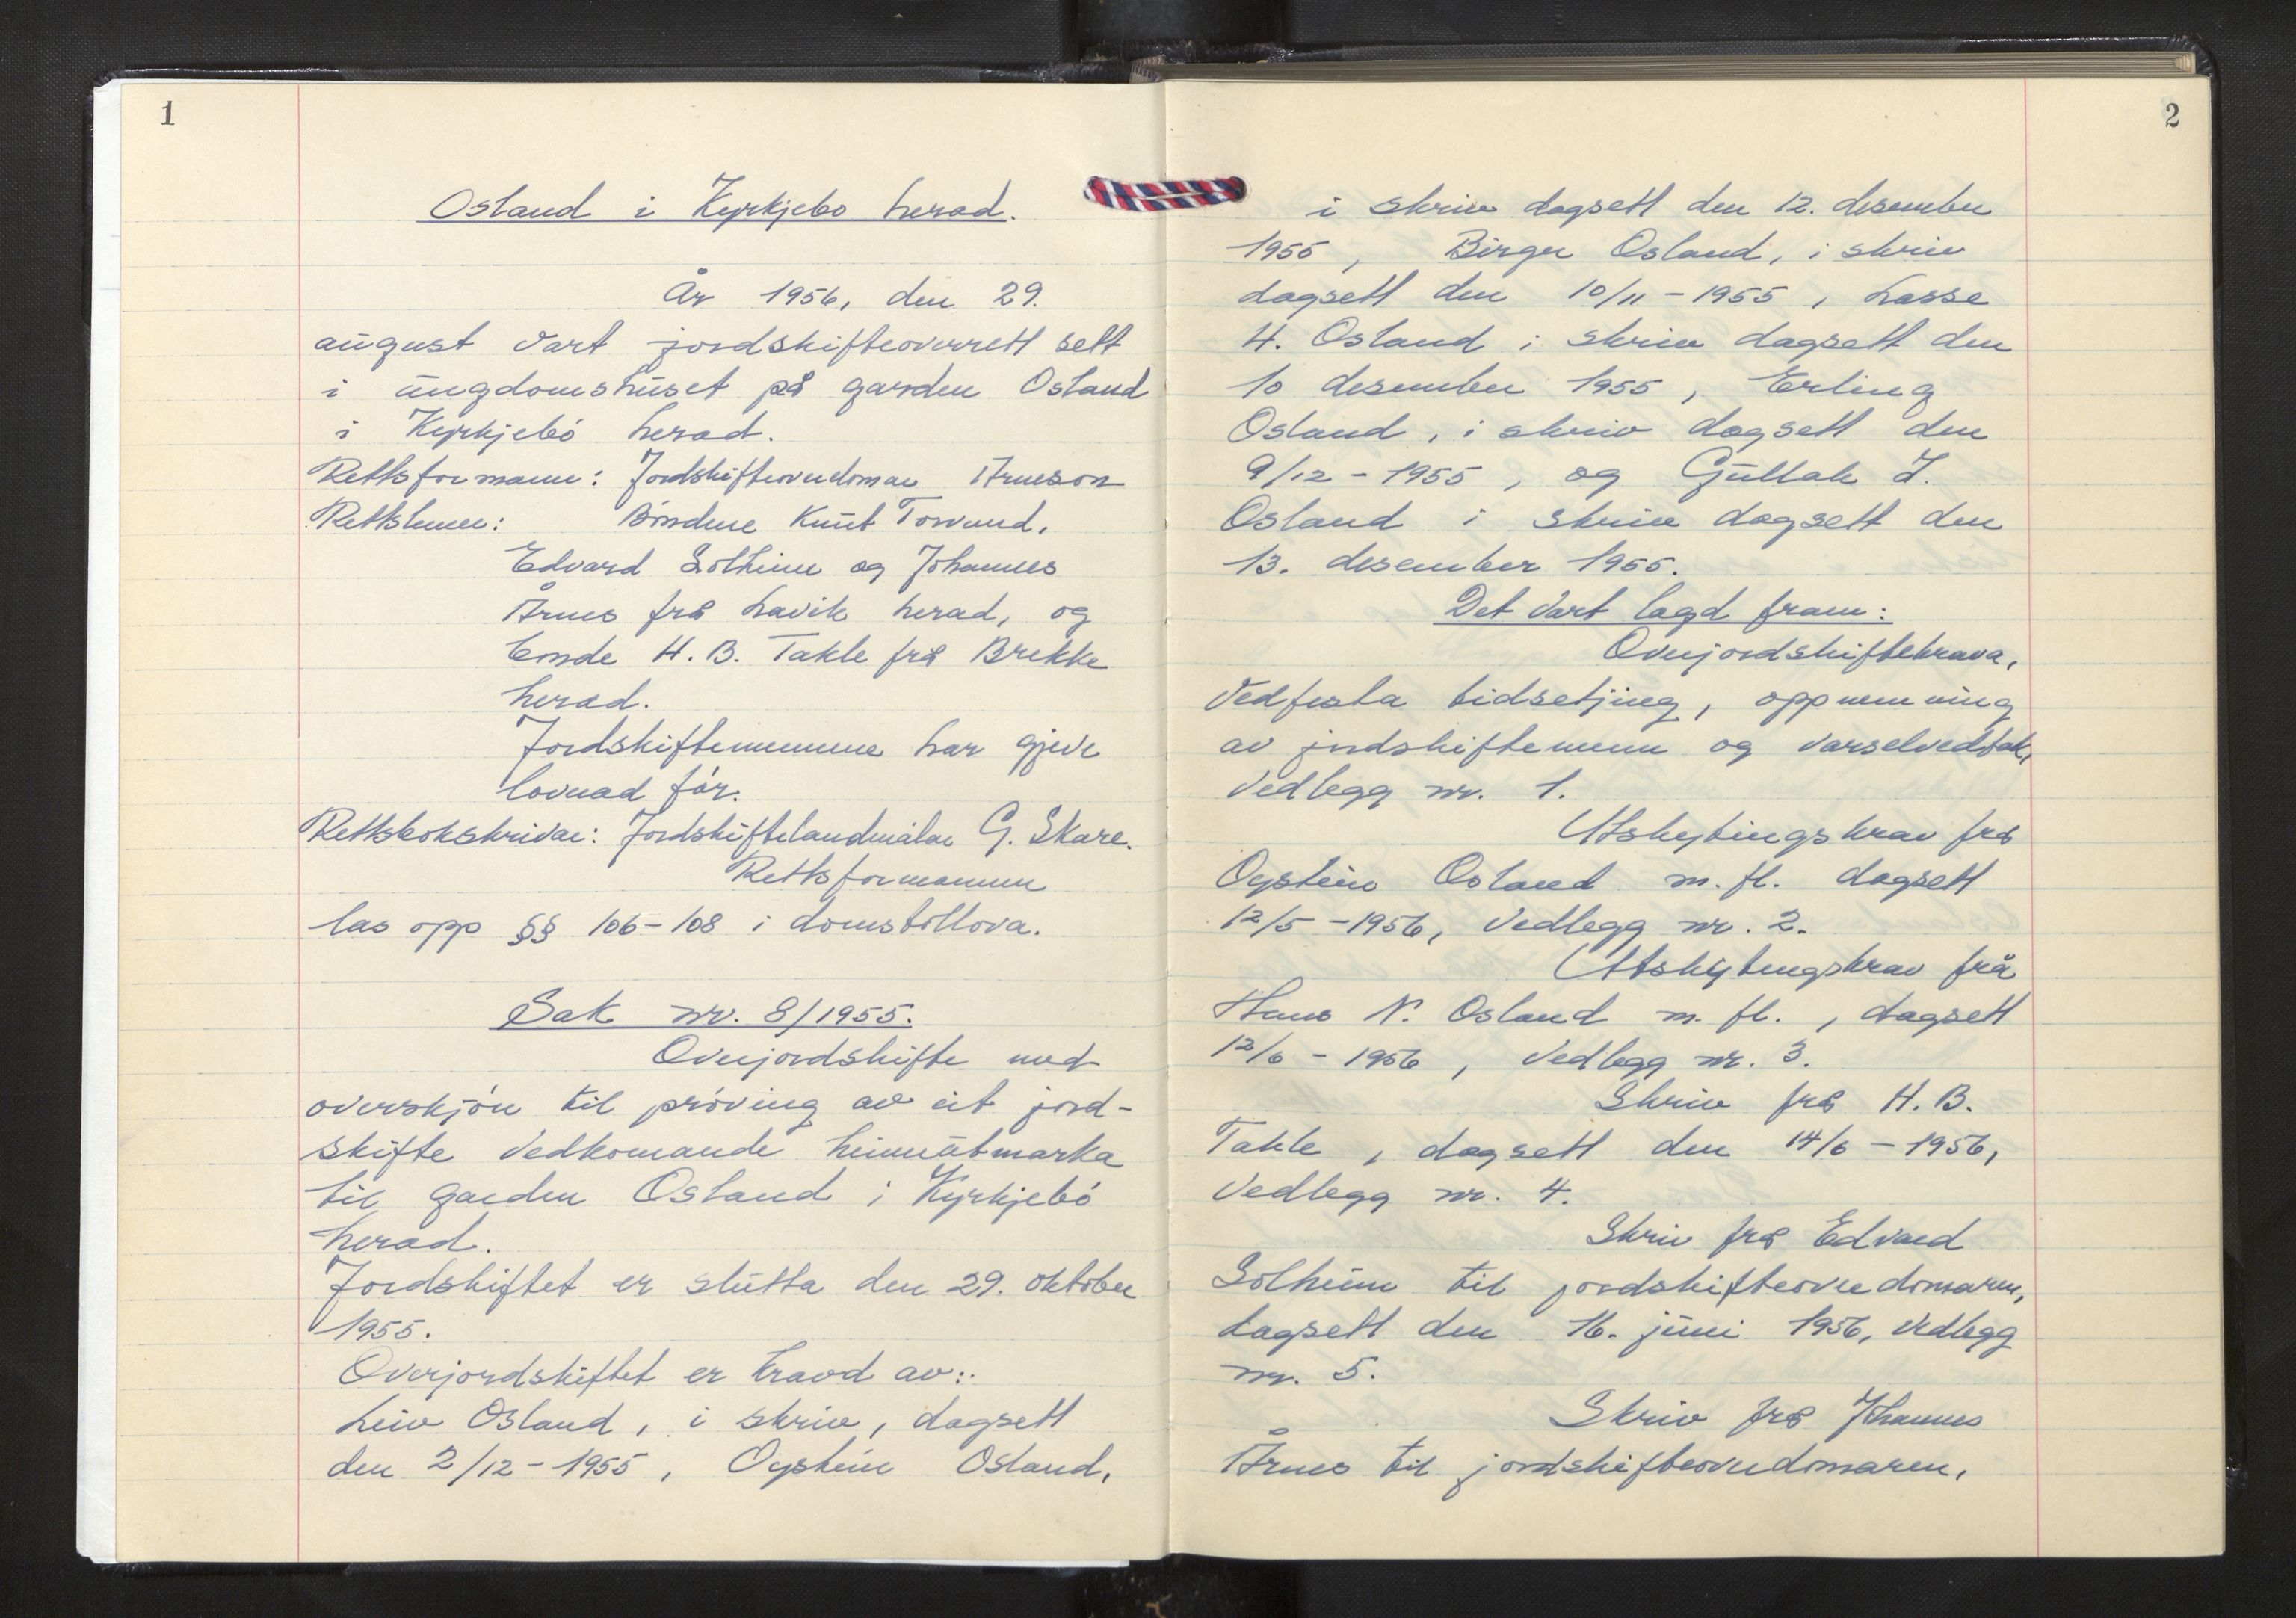 1
Osland i Kyrkjebø herad.
År 1956, den 29.
august vart jordskifteoverrett sett
i ungdomshuset på garden Osland
i Kyrkjebó herad.
Rettsformann: Jordskifteoverdomar Arneson
Rettslemer: Bóndene Knut Torvund,
Edvard Solheim og Johannes
Årnes frå Lavik herad, og
bonde H. B. Takle frå Brekke
herad.
Jordskiftemennene har gjeve
lovnad fór.
Rettsbokskrivar: Jordskiftelandmålar G. Skare.
Rettsformannen
las opp §§ 106-108 i domstollova.
Sak nr. 8/1955.
Overjordskifte med
overskjón til próving av eit jord-
skifte vedkomande heimeutmarka
til garden Osland i Kyrkjebó
herad.
Jordskiftet er slutta den 29. oktober
1955.
Overjordskiftet er kravd av:
Leiv Osland, i skriv, dagsett
den 2/12-1955, Oystein Osland,
2
i skriv dagsett den 12. desember
1955, Birger Osland, i skriv
dagsett den 10/11-1955, Lasse
H. Osland i skriv dagsett den
10 desember 1955, Erling
Osland, i skriv dagsett den
9/12-1955, og Gullak J.
Osland i skriv dagsett den
13. desember 1955.
Det vart lagd fram:
Overjordskiftekrava,
vedfesta tidsetjing, oppnemning
av jordskiftemenn og varselvedtak,
vedlegg nr. 1.
Utskytingskrav frå
Oystein Osland m. fl. dagsett
12/5-1956, vedlegg nr. 2.
Utskytingskrav frå
Hans N. Osland m. fl., dagsett
12/6-1956, vedlegg nr. 3.
Skriv frå H. B.
Takle, dagsett den 14/6-1956,
vedlegg nr. 4.
Skriv frå Edvard
Solheim til jordskifteoverdomaren,
dagsett den 16. juni 1956, vedlegg
nr. 5.
Skriv frå Johannes
Årnes til jordskifteoverdomaren,